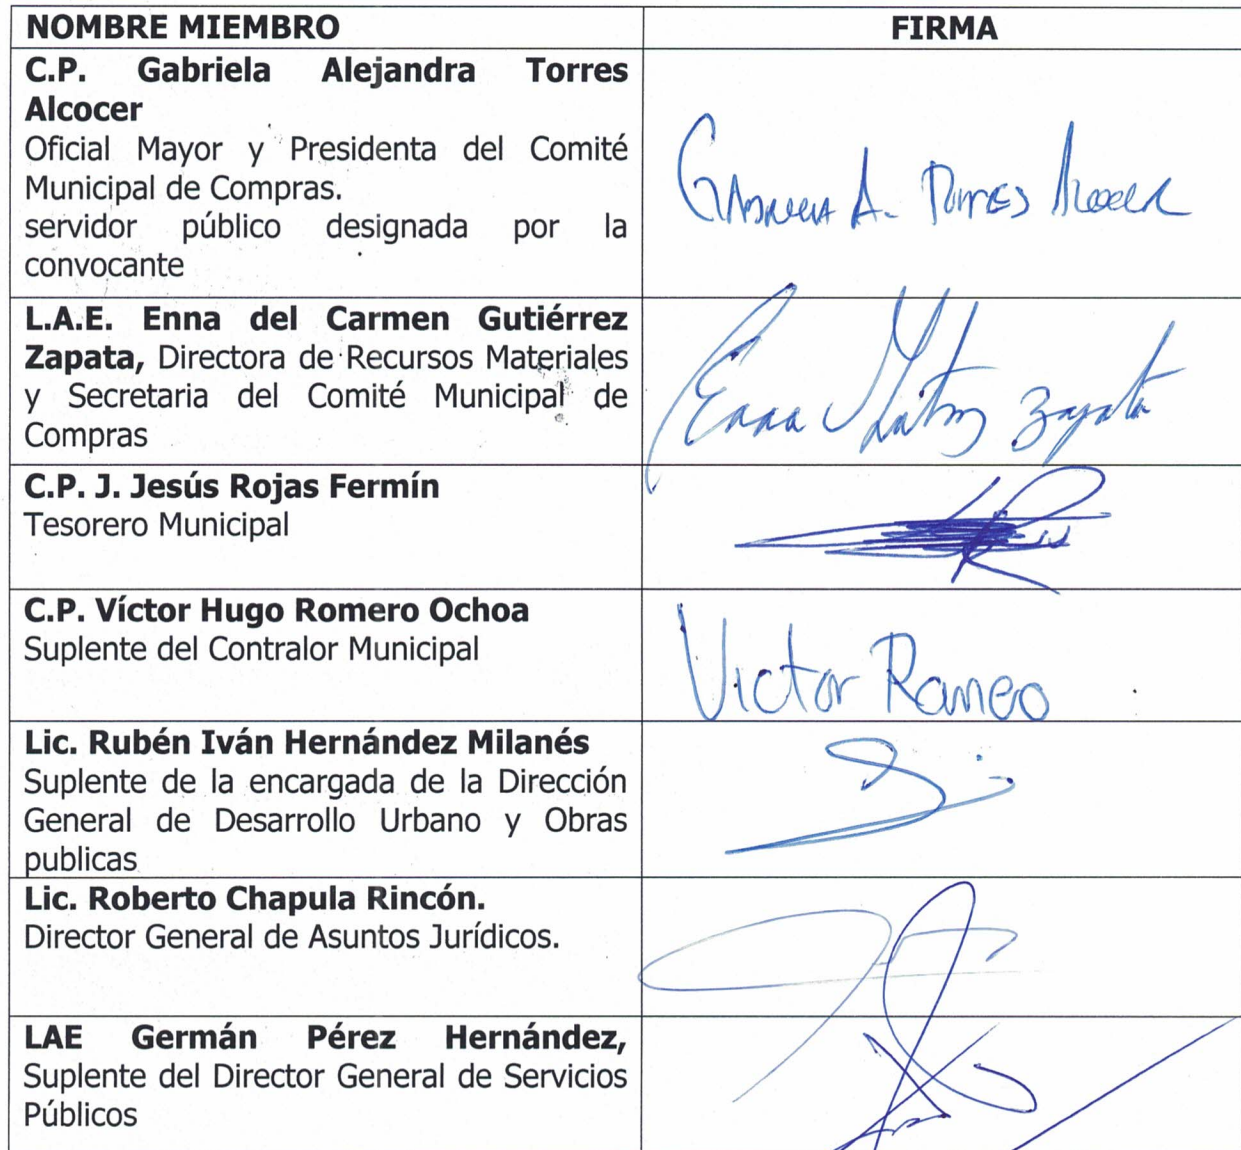 NOMBRE MIEMBRO
FIRMA
C.P. Gabriela Alejandra Torres
Alcocer
Oficial Mayor y Presidenta del Comité
Municipal de Compras.
servidor público designada por la
convocante
Gabriela A. Torres Alcocer
L.A.E. Enna del Carmen Gutiérrez
Zapata, Directora de Recursos Materiales
y Secretaria del Comité Municipal de
Compras
Enna Zapata
C.P. J. Jesús Rojas Fermín
Tesorero Municipal
C.P. Víctor Hugo Romero Ochoa
Suplente del Contralor Municipal
Victor Romeo
Lic. Rubén Iván Hernández Milanés
Suplente de la encargada de la Dirección
General de Desarrollo Urbano y Obras
publicas
Lic. Roberto Chapula Rincón.
Director General de Asuntos Jurídicos.
LAE Germán Pérez Hernández,
Suplente del Director General de Servicios
Públicos